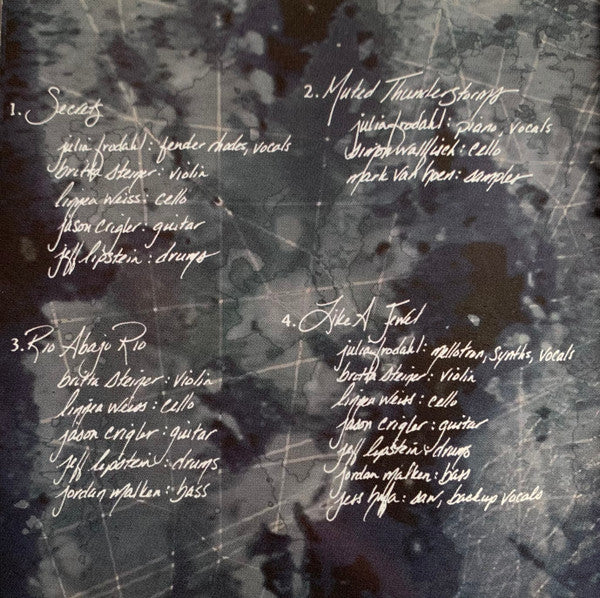 1. Secrets
julia frodahl: fender rhodes, vocals
britta steiner: violin
linnea weiss: cello
jason crigler: guitar
jeff lipstein: drums
2. Muted Thunderstorms
julia frodahl: piano, vocals
simon wallfisch: cello
mark van hoen: sampler
3. Rio Abajo Rio
britta steiner: violin
linnea weiss: cello
jason crigler: guitar
jeff lipstein: drums
jordan malken: bass
4. Like A Jewel
julia frodahl: mellotron, synths, vocals
britta steiner: violin
linnea weiss: cello
jason crigler: guitar
jeff lipstein: drums
jordan malken: bass
jess : saw, backup vocals